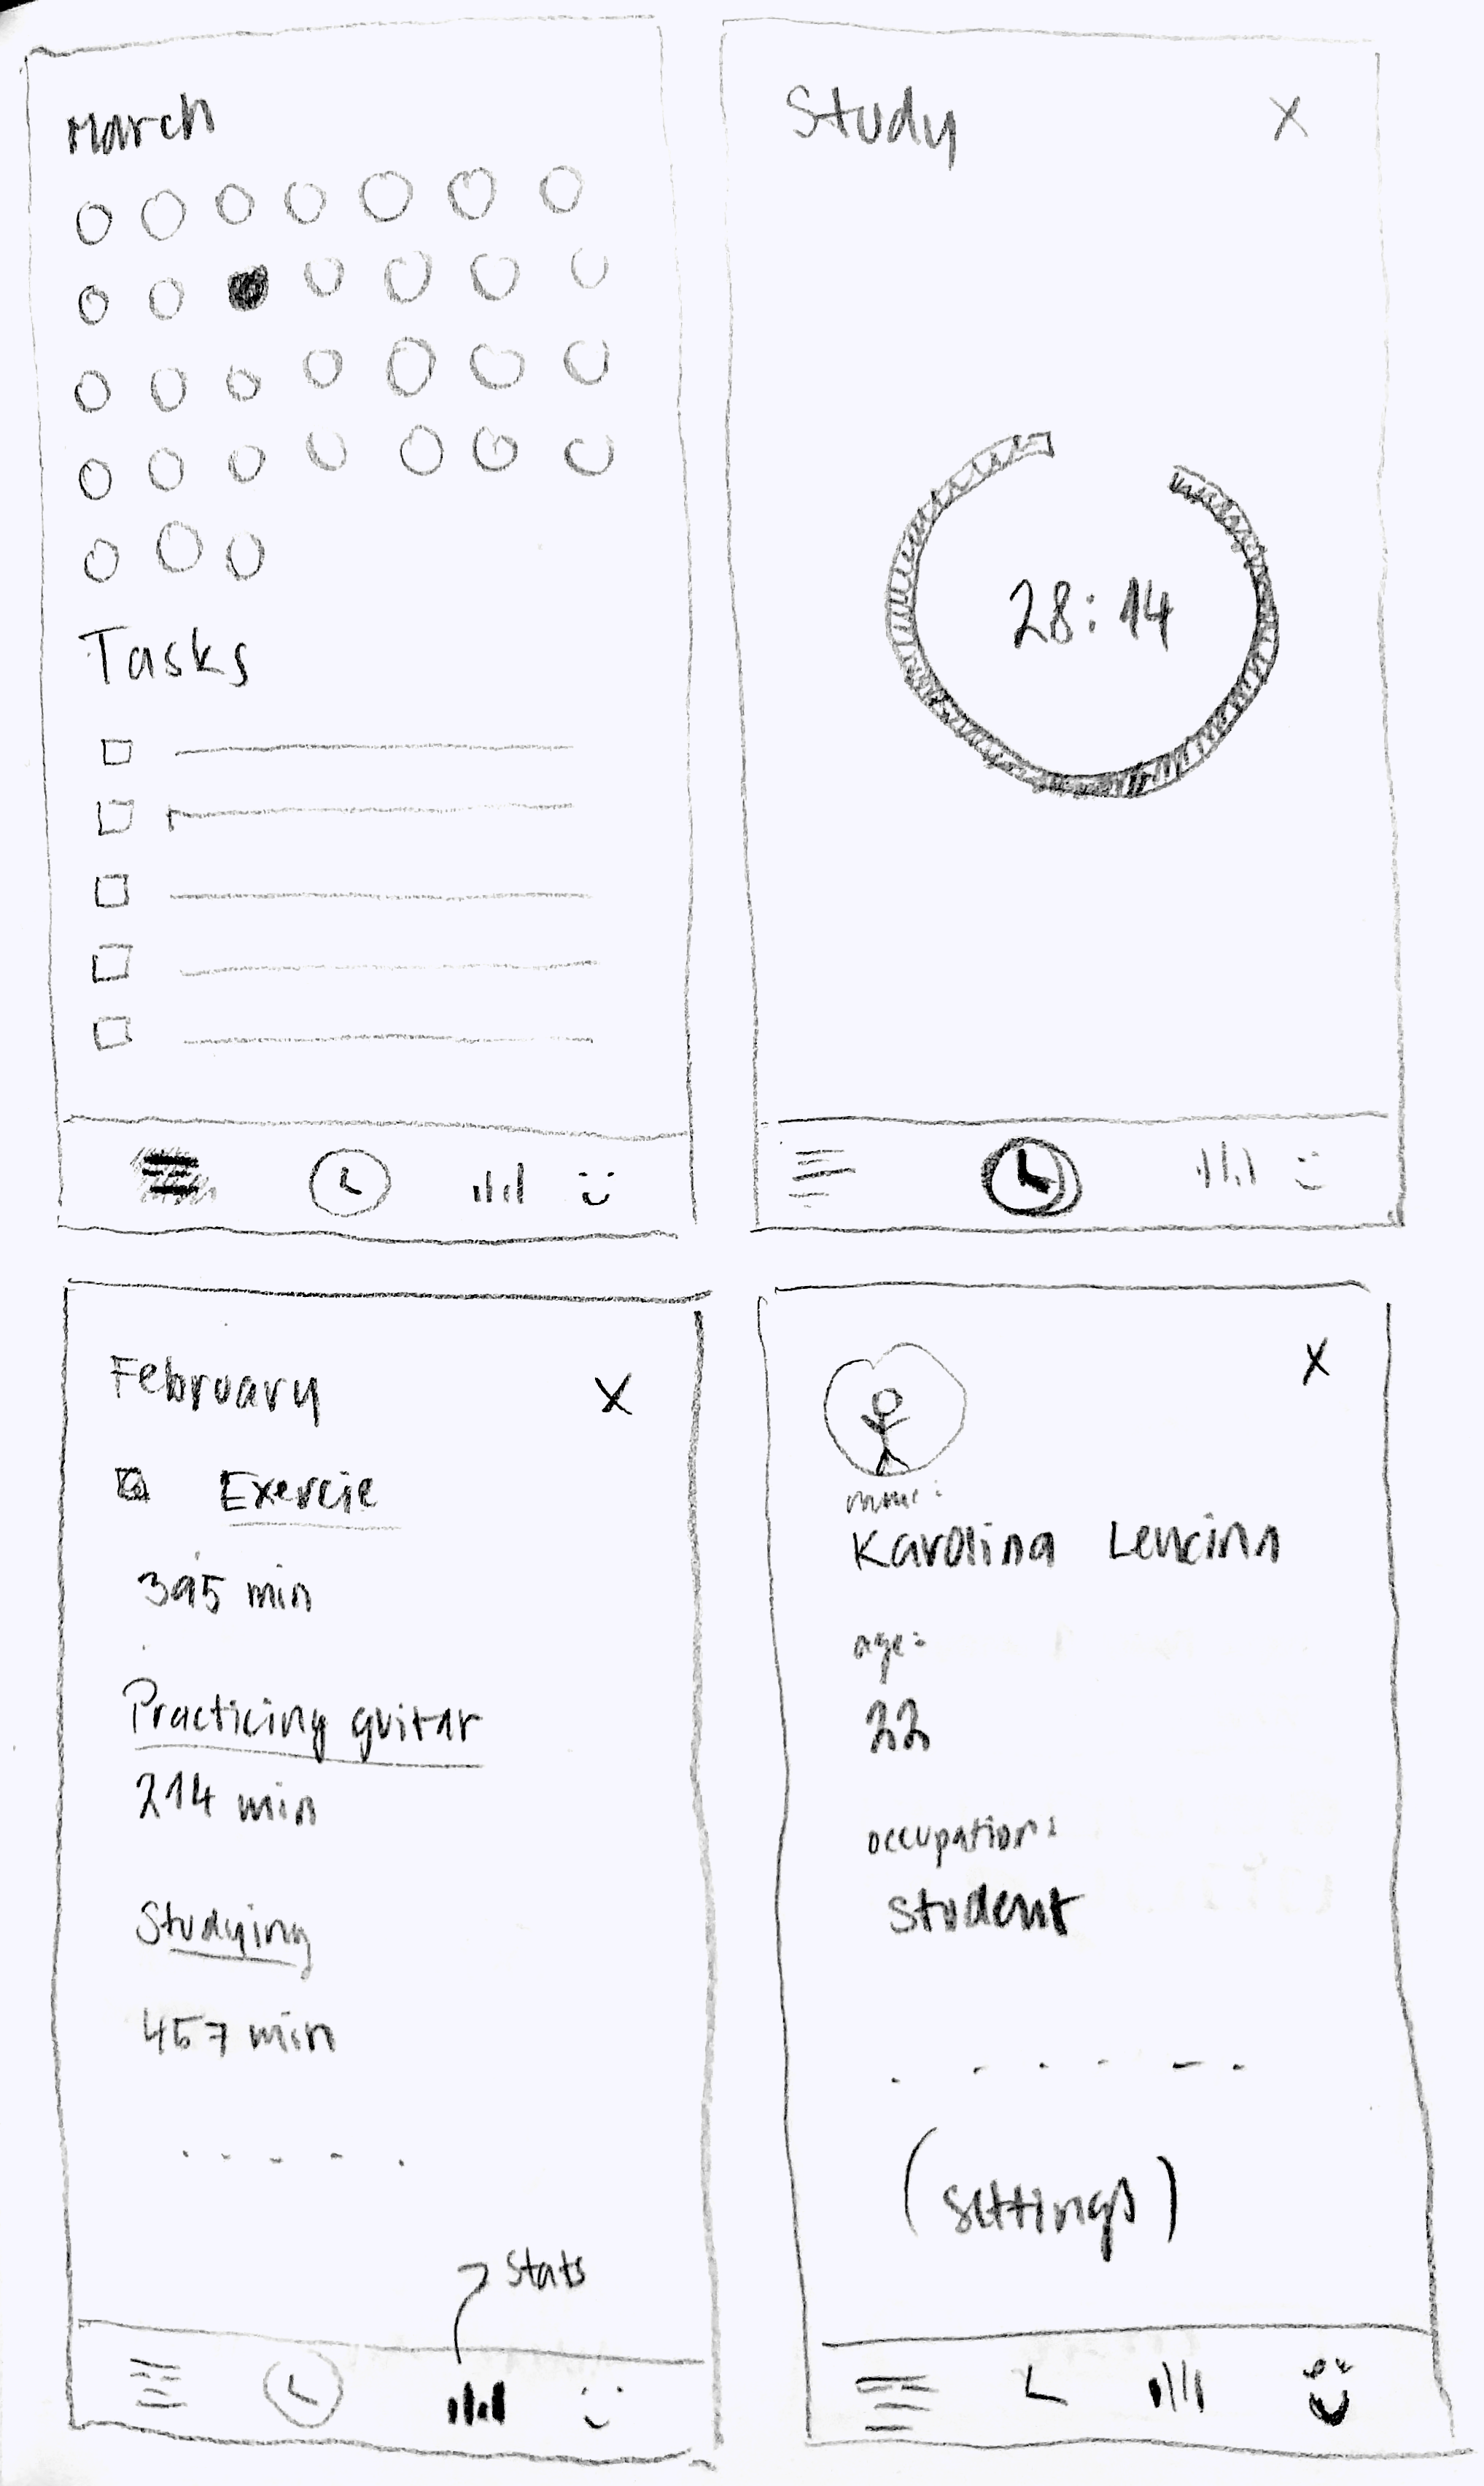 March
Tasks
Study X
28:14
February X
Exercie
395 min
Practicing guitar
214 min
Studying
457 min
Stats
X
name:
Karolina
age:
22
occupation:
student
(settings)